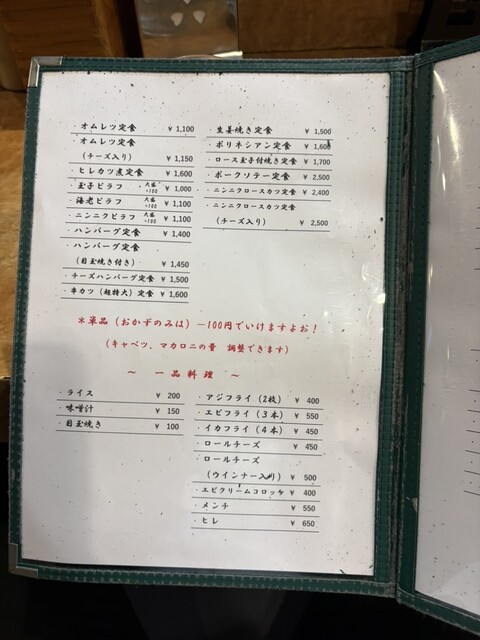 ・オムレツ定食 ￥ 1,100
・オムレツ定食
（チーズ入り） ￥ 1,150
・ヒレカツ煮定食 ￥ 1,600
・玉子ピラフ 大盛+100 ￥ 1,000
・海老ピラフ 大盛+100 ￥ 1,100
・ニンニクピラフ 大盛+100 ￥ 1,100
・ハンバーグ定食 ￥ 1,400
・ハンバーグ定食
（目玉焼き付き） ￥ 1,450
・チーズハンバーグ定食 ￥ 1,500
・串カツ（超特大）定食 ￥ 1,600
・生姜焼き定食 ￥ 1,500
・ポリネシアン定食 ￥ 1,600
・ロース玉子付焼き定食 ￥ 1,700
・ポークソテー定食 ￥ 2,500
・ニンニクロースカツ定食 ￥ 2,400
・ニンニクロースカツ定食
（チーズ入り） ￥ 2,500
＊単品（おかずのみは）－100円でいけますよお！
（キャベツ、マカロニの量 調整できます）
～ 一品料理 ～
・ライス ￥ 200
・味噌汁 ￥ 150
・目玉焼き ￥ 100
・アジフライ（2枚） ￥ 400
・エビフライ（3本） ￥ 550
・イカフライ（4本） ￥ 450
・ロールチーズ ￥ 450
・ロールチーズ
（ウインナー入り） ￥ 500
・エビクリームコロッケ ￥ 400
・メンチ ￥ 550
・ヒレ ￥ 650